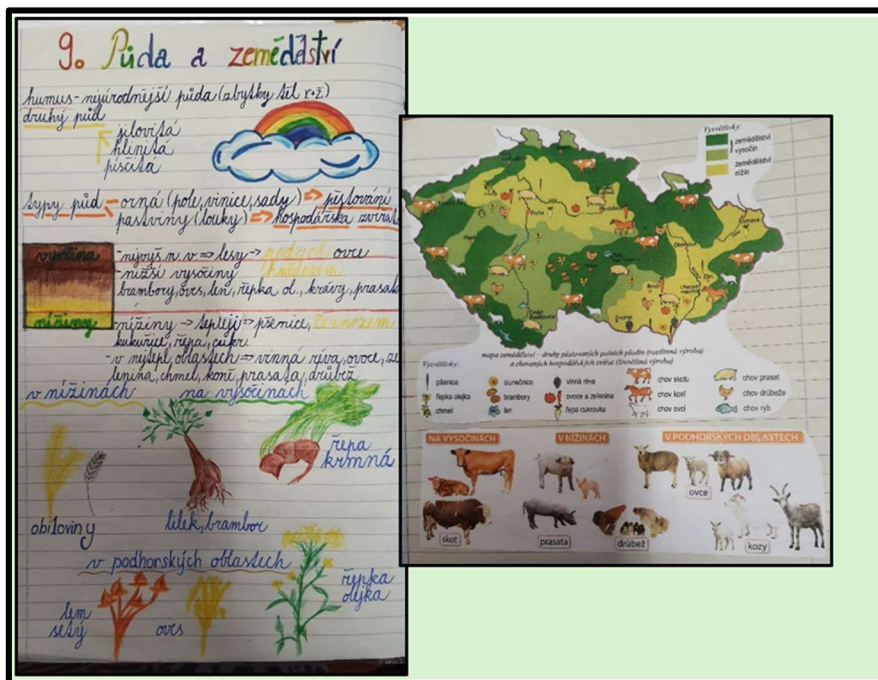 9. Půda a zemědělství
humus - nejúrodnější půda (zbytky těl r+ž)
druhy půd
jílovitá
hlinitá
písčitá
typy půd - orná (pole, vinice, sady) => pěstování
pastviny (louky) => hospodářska zvířata
vysočina
- nejvýš. n. v => lesy -> podzol ovce
- nižší vysočiny hnědozem
brambory, oves, len, řepka ol., krávy, prasata
nížiny
- nížiny -> tepleji -> pšenice, černozem
kukuřice, řepa, cukr
- v nejtepl. oblastech => vinná réva, ovoce, ze
lenina, chmel, koně, prasata, drůbež
v nížinách na vysočinách
řepa
krmná
obiloviny
lilek, brambor
v podhorských oblastech
řepka
olejka
lem
setý
oves
Vysvětlivky:
zemědělství
vysočin
zemědělství
nížin
Praha
Olomouc
Brno
Zlín
mapa zemědělství – druhy pěstovaných polních plodin (rostlinná výroba)
a chovaných hospodářských zvířat (živočišná výroba)
Vysvětlivky:
pšenice
řepka olejka
chmel
slunečnice
brambory
len
vinná réva
ovoce a zelenina
řepa cukrovka
chov skotu
chov koní
chov ovcí
chov prasat
chov drůbeže
chov ryb
NA VYSOČINÁCH
V NÍŽINÁCH
V PODHORSKÝCH OBLASTECH
ovce
skot
prasata
drůbež
kozy